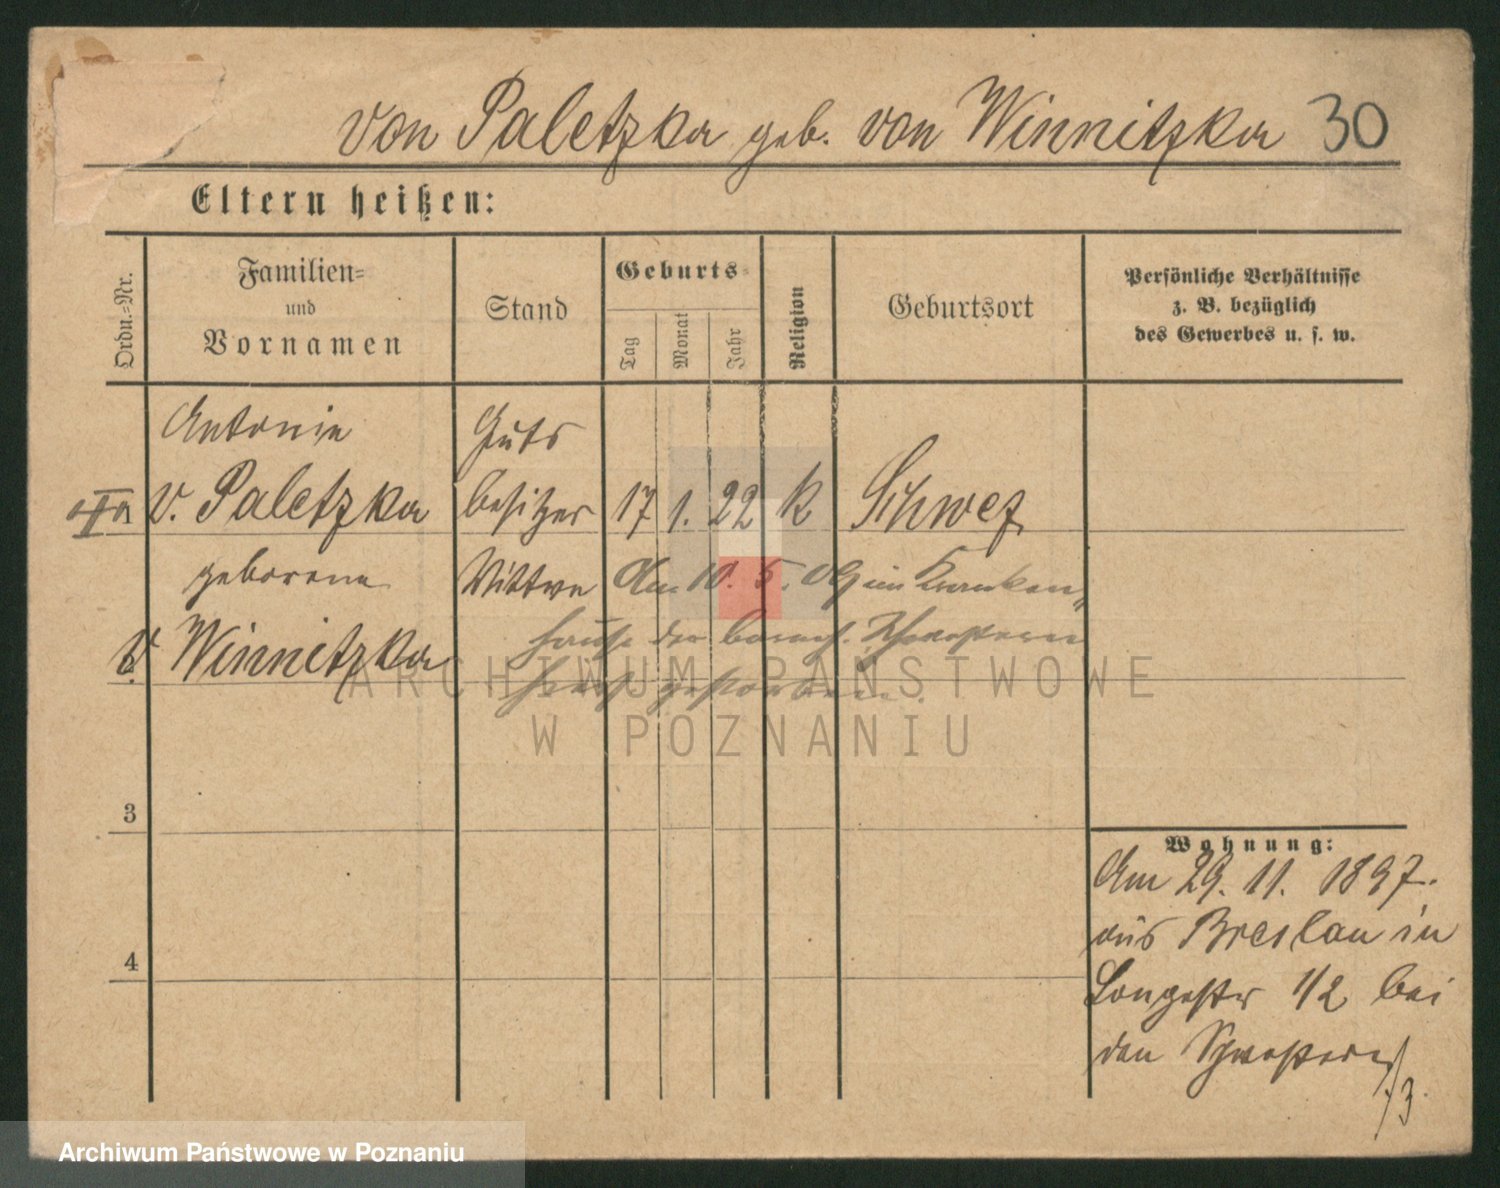 von Paletzka geb. von Winnitzka 30
Eltern heißen:
Ordn.=Nr.
Familien=
und
Vornamen
Stand
Geburts=
Tag
Monat
Jahr
Religion
Geburtsort
Persönliche Verhältnisse
z. B. bezüglich
des Gewerbes u. s. w.
Antonie
Guts
v. Paletzka
besitzer
17
1.
22
k
Schwez
geborene
Wittwe
Am 10. 5. 09 im Kranken-
v. Winnitzka
hause der barmh. Schwestern
hier gestorben.
ARCHIWUM PAŃSTWOWE
W POZNANIU
3
4
Wohnung:
Am 29. 11. 1897.
aus Breslau in
Langestr 1/2 bei
den Schwestern
/3.
Archiwum Państwowe w Poznaniu